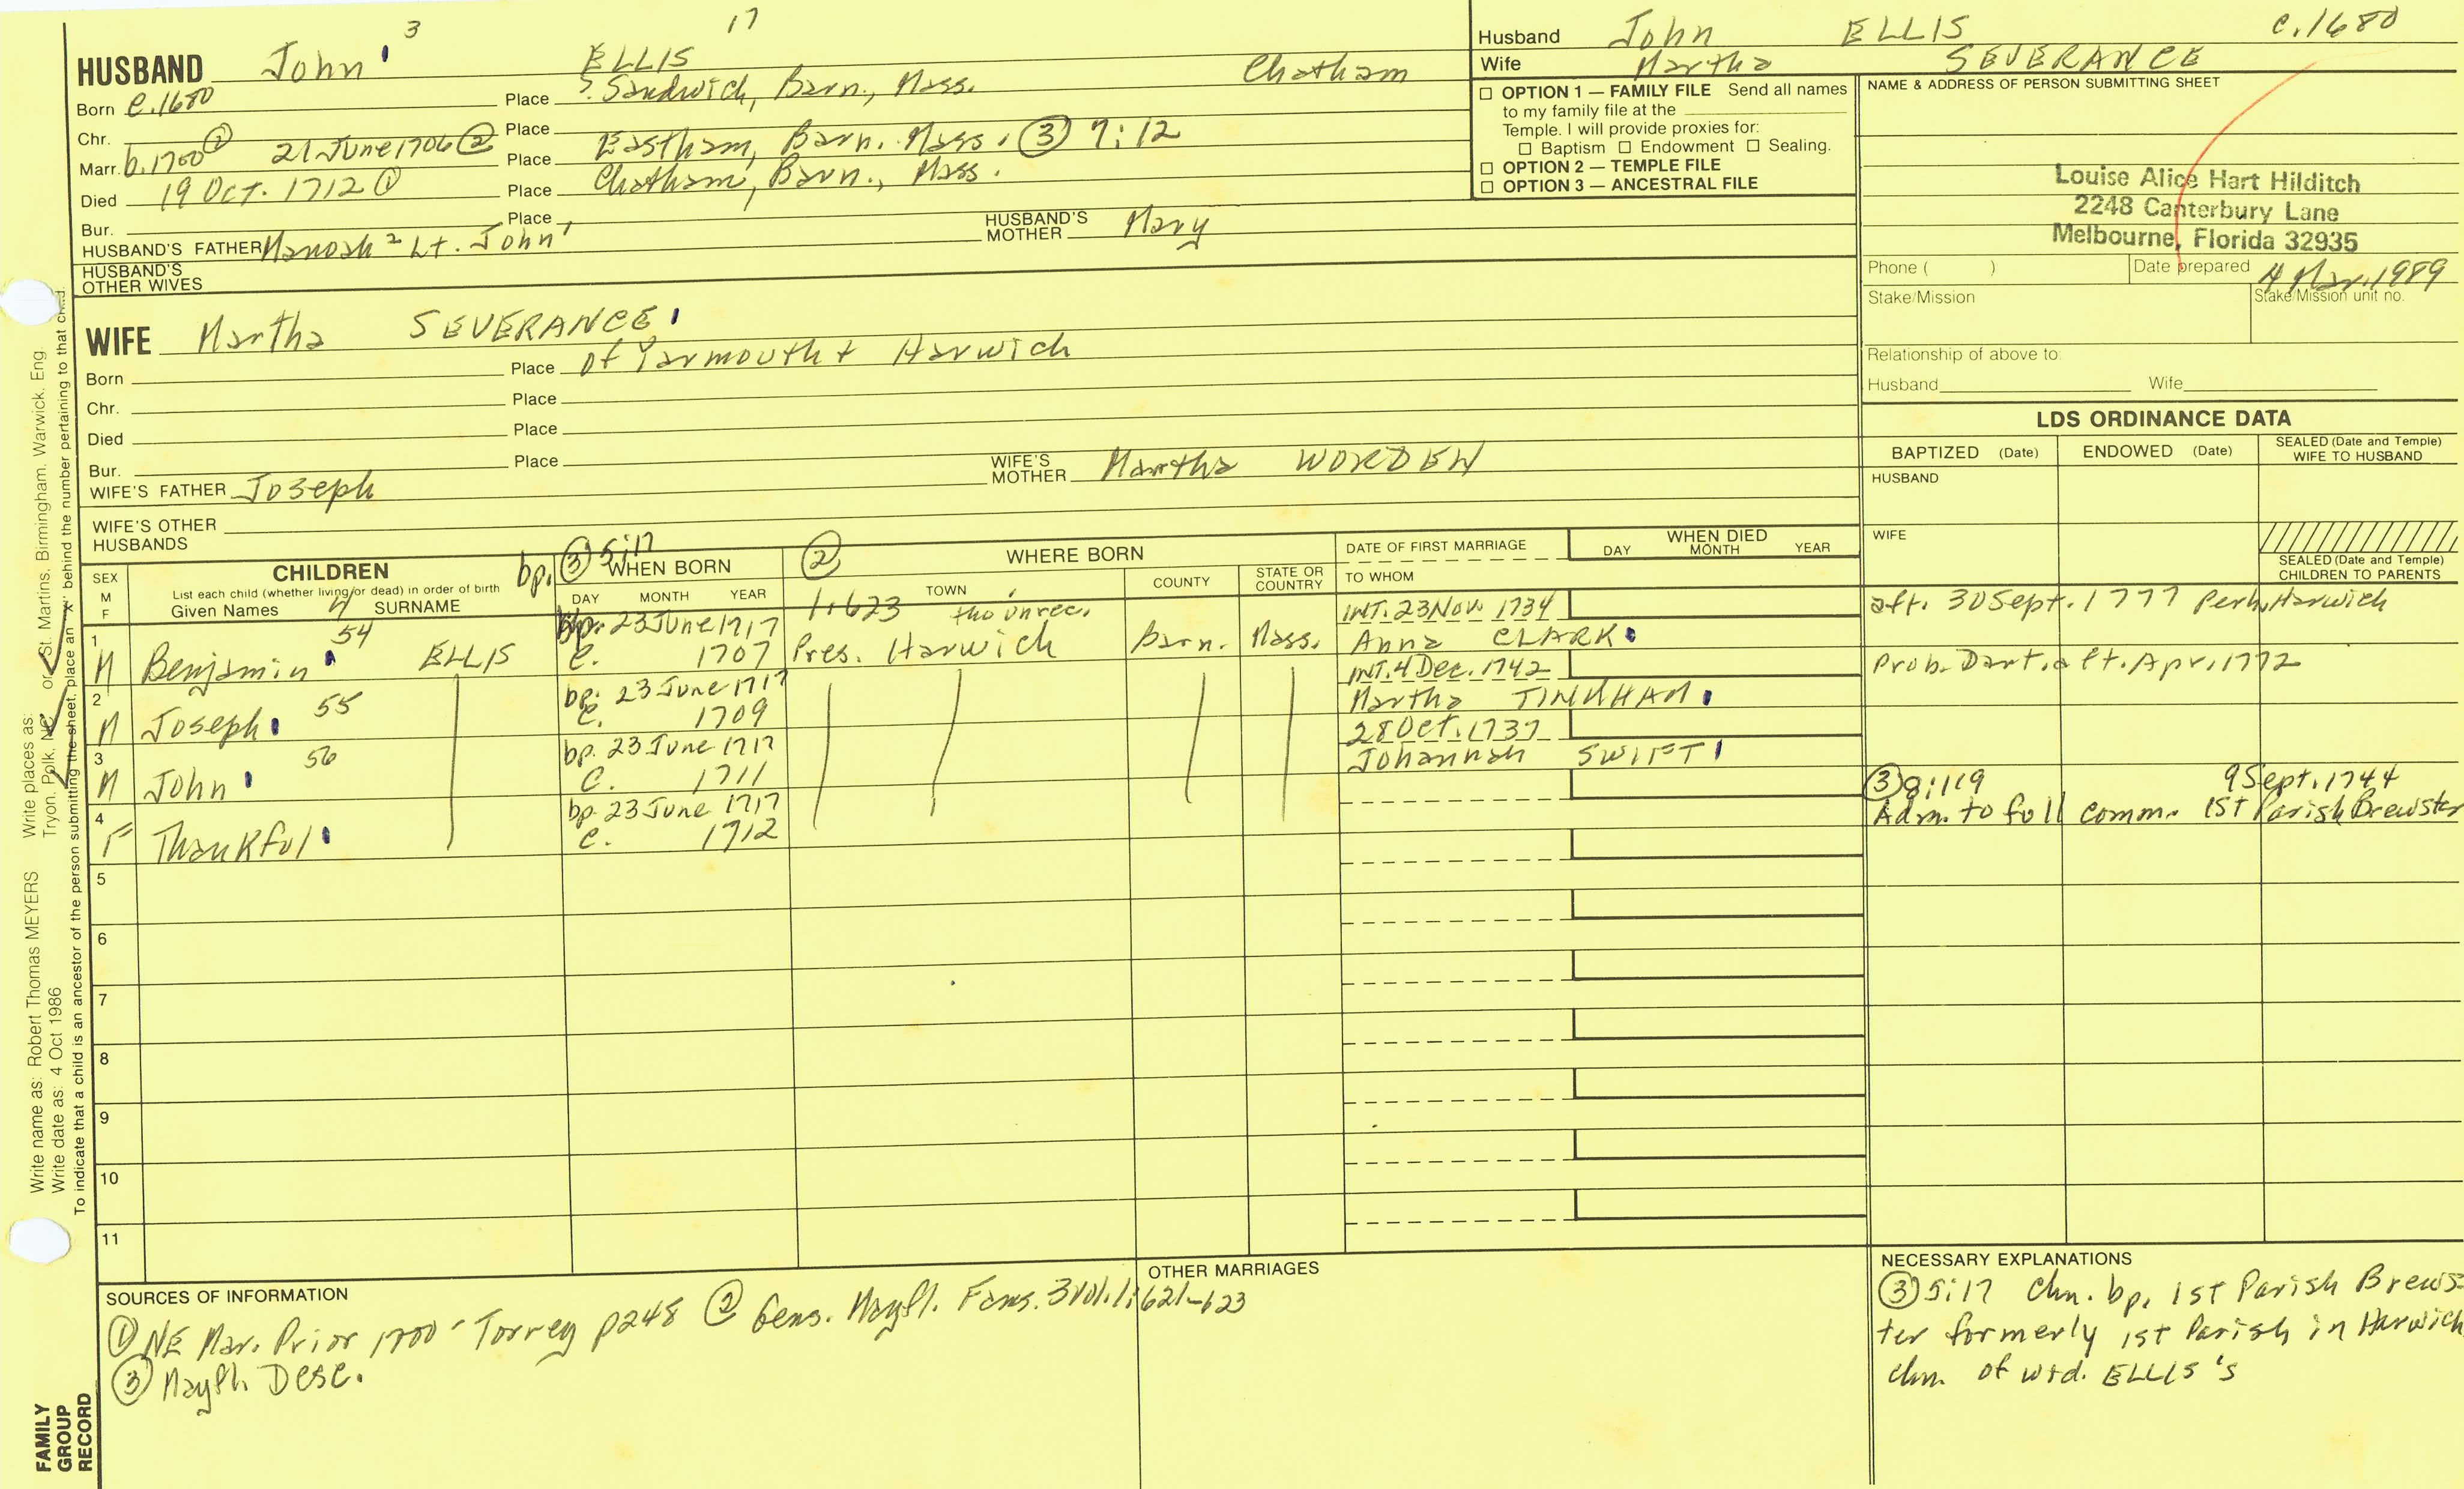 3 17
HUSBAND John ELLIS Chatham
Born c.1680 Place ? Sandwich, Barn., Mass.
Chr. Place
Marr. b.1700 ① 21 June 1706 ② Place Eastham, Barn. Mass. ③ 7:12
Died 19 Oct. 1712 ① Place Chatham, Barn., Mass.
Bur. Place
HUSBAND'S FATHER Manoah 2 Lt. John 1 HUSBAND'S MOTHER Mary
HUSBAND'S OTHER WIVES
WIFE Martha SEVERANCE
Born Place of Yarmouth + Harwich
Chr. Place
Died Place
Bur. Place
WIFE'S FATHER Joseph WIFE'S MOTHER Martha WORDEN
WIFE'S OTHER HUSBANDS
Husband John ELLIS c.1680
Wife Martha SEVERANCE
☐ OPTION 1 — FAMILY FILE Send all names
to my family file at the
Temple. I will provide proxies for:
☐ Baptism ☐ Endowment ☐ Sealing.
☐ OPTION 2 — TEMPLE FILE
☐ OPTION 3 — ANCESTRAL FILE
NAME & ADDRESS OF PERSON SUBMITTING SHEET
Louise Alice Hart Hilditch
2248 Canterbury Lane
Melbourne, Florida 32935
Phone ( ) Date prepared 4 Mar. 1989
Stake/Mission Stake/Mission unit no.
Relationship of above to:
Husband Wife
LDS ORDINANCE DATA
BAPTIZED (Date) ENDOWED (Date) SEALED (Date and Temple) WIFE TO HUSBAND
HUSBAND
WIFE
SEALED (Date and Temple)
CHILDREN TO PARENTS
SEX M F CHILDREN
List each child (whether living or dead) in order of birth
Given Names 4 SURNAME
bp. ③ 5:17 WHEN BORN
DAY MONTH YEAR
② WHERE BORN
TOWN COUNTY STATE OR COUNTRY
1:623 tho unrec.
DATE OF FIRST MARRIAGE
TO WHOM
WHEN DIED
DAY MONTH YEAR
1 54 bp. 23 June 1717 INT. 23 Nov. 1734 aft. 30 Sept. 1777 Perh. Harwich
M Benjamin ELLIS c. 1707 Pres. Harwich Barn. Mass. Anna CLARK
2 55 bp. 23 June 1717 INT. 4 Dec. 1742 Prob. Dart. aft. Apr. 1772
M Joseph c. 1709 Martha TINKHAM
3 56 bp. 23 June 1717 28 Oct. 1737
M John c. 1711 Johannah SWIFT
4 bp. 23 June 1717 ③ 8:119 9 Sept. 1744
F Thankful c. 1712 Adm. to full comm. 1st Parish Brewster
5
6
7
8
9
10
11
SOURCES OF INFORMATION
① NE Mar. Prior 1700 - Torrey p248 ② Gens. Mayfl. Fams. 3 vol. 1:621-623
③ Mayfl. Desc.
OTHER MARRIAGES
NECESSARY EXPLANATIONS
③ 5:17 chn. bp. 1st Parish Brews
ter formerly 1st Parish in Harwich
chn. of wid. ELLIS's
FAMILY
GROUP
RECORD
Write name as: Robert Thomas MEYERS Write places as: Tryon, Polk, NC or St. Martins, Birmingham, Warwick, Eng.
Write date as: 4 Oct 1986
To indicate that a child is an ancestor of the person submitting the sheet, place an "X" behind the number pertaining to that child.